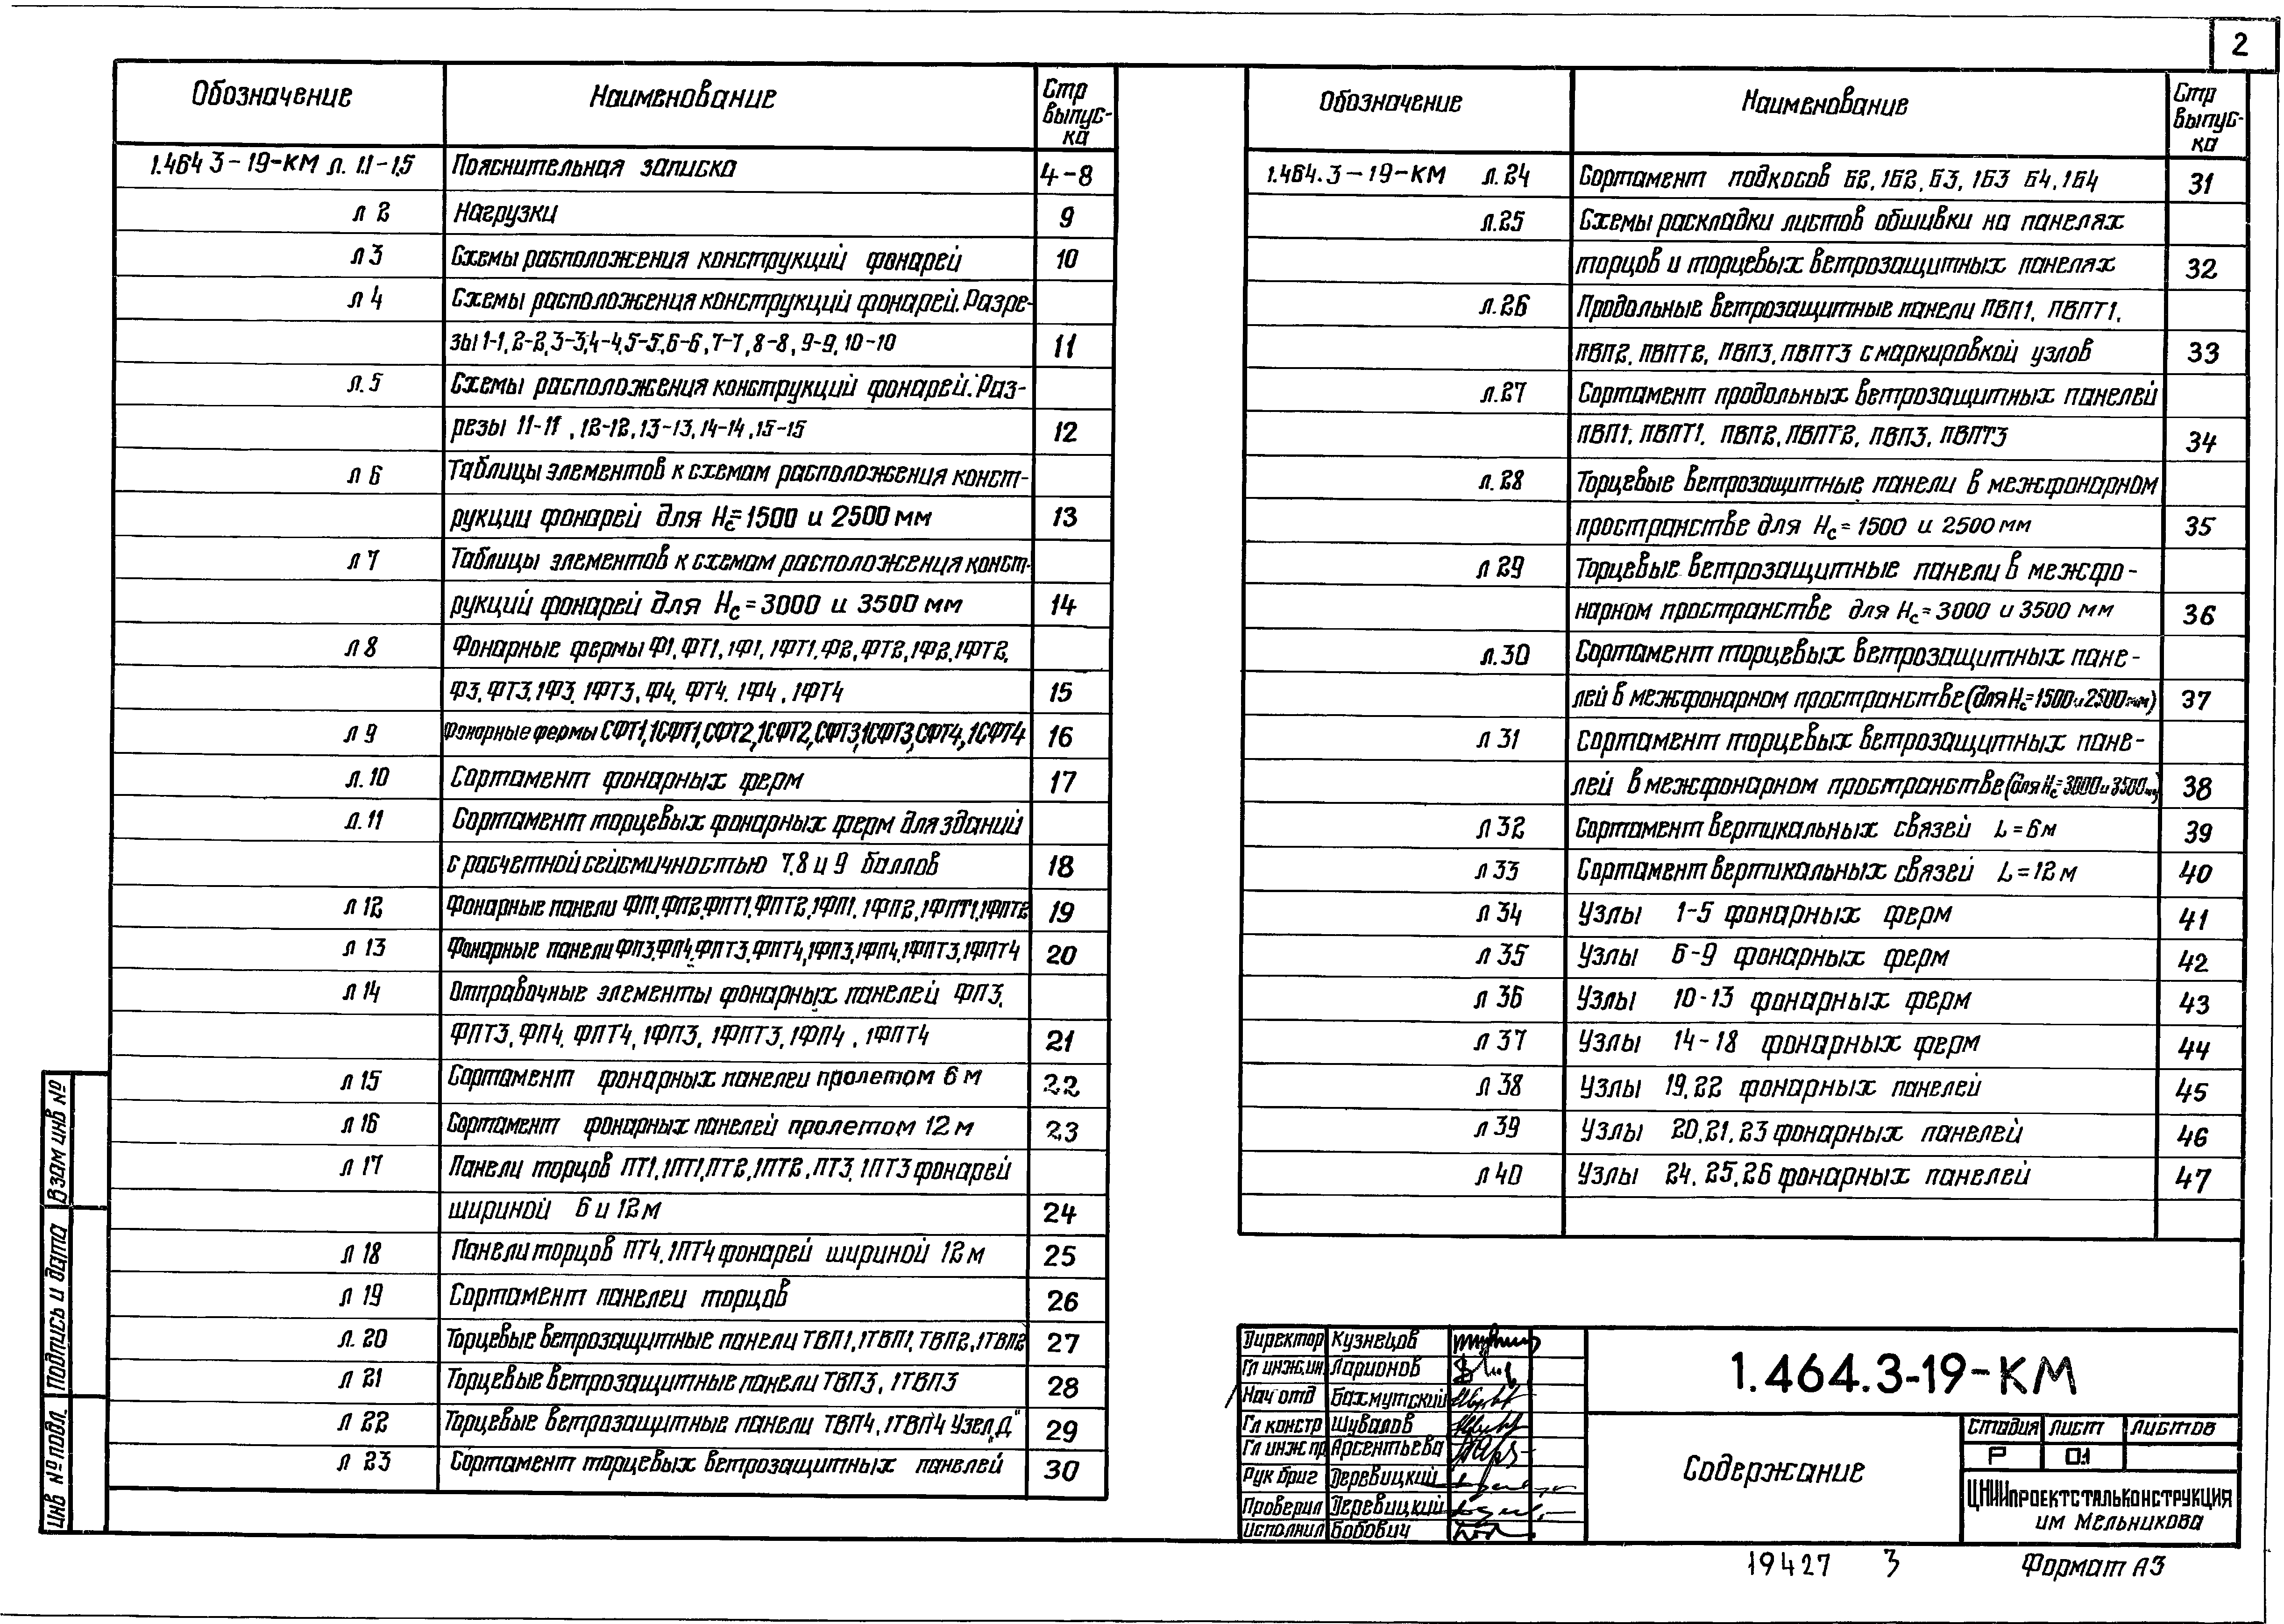 2
Обозначение Наименование Стр выпус-ка
1.464 3-19-КМ л. 1.1-1.5 Пояснительная записка 4-8
л 2 Нагрузки 9
л 3 Схемы расположения конструкций фонарей 10
л 4 Схемы расположения конструкций фонарей. Разре-
зы 1-1, 2-2, 3-3, 4-4, 5-5, 6-6, 7-7, 8-8, 9-9, 10-10 11
л. 5 Схемы расположения конструкций фонарей. Раз-
резы 11-11, 12-12, 13-13, 14-14, 15-15 12
л 6 Таблицы элементов к схемам расположения конст-
рукции фонарей для Hс=1500 и 2500 мм 13
л 7 Таблицы элементов к схемам расположения конст-
рукций фонарей для Hс=3000 и 3500 мм 14
л 8 Фонарные фермы Ф1, ФТ1, 1Ф1, 1ФТ1, Ф2, ФТ2, 1Ф2, 1ФТ2,
Ф3, ФТ3, 1Ф3, 1ФТ3, Ф4, ФТ4, 1Ф4, 1ФТ4 15
л 9 Фонарные фермы СФТ1, 1СФТ1, СФТ2, 1СФТ2, СФТ3, 1СФТ3, СФТ4, 1СФТ4 16
л. 10 Сортамент фонарных ферм 17
л. 11 Сортамент торцевых фонарных ферм для зданий
с расчетной сейсмичностью 7, 8 и 9 баллов 18
л 12 Фонарные панели ФП1, ФП2, ФПТ1, ФПТ2, 1ФП1, 1ФП2, 1ФПТ1, 1ФПТ2 19
л 13 Фонарные панели ФП3, ФП4, ФПТ3, ФПТ4, 1ФП3, 1ФП4, 1ФПТ3, 1ФПТ4 20
л 14 Отправочные элементы фонарных панелей ФП3,
ФПТ3, ФП4, ФПТ4, 1ФП3, 1ФПТ3, 1ФП4, 1ФПТ4 21
л 15 Сортамент фонарных панелеи пролетом 6 м 22
л 16 Сортамент фонарных панелей пролетом 12 м 23
л 17 Панели торцов ПТ1, 1ПТ1, ПТ2, 1ПТ2, ПТ3, 1ПТ3 фонарей
шириной 6 и 12 м 24
л 18 Панели торцов ПТ4, 1ПТ4 фонарей шириной 12 м 25
л 19 Сортамент панелеи торцов 26
л. 20 Торцевые ветрозащитные панели ТВП1, 1ТВП1, ТВП2, 1ТВП2 27
л 21 Торцевые ветрозащитные панели ТВП3, 1ТВП3 28
л 22 Торцевые ветрозащитные панели ТВП4, 1ТВП4 Узел „Д" 29
л 23 Сортамент торцевых ветрозащитных панелей 30
Обозначение Наименование Стр выпус-ка
1.464.3-19-КМ л. 24 Сортамент подкосов Б2, 1Б2, Б3, 1Б3 Б4, 1Б4 31
л. 25 Схемы раскладки листов обшивки на панелях
торцов и торцевых ветрозащитных панелях 32
л. 26 Продольные ветрозащитные панели ПВП1, ПВПТ1,
ПВП2, ПВПТ2, ПВП3, ПВПТ3 с маркировкой узлов 33
л. 27 Сортамент продольных ветрозащитных панелей
ПВП1, ПВПТ1, ПВП2, ПВПТ2, ПВП3, ПВПТ3 34
л. 28 Торцевые ветрозащитные панели в межфонарном
пространстве для Hс=1500 и 2500 мм 35
л 29 Торцевые ветрозащитные панели в межфо-
нарном пространстве для Hс=3000 и 3500 мм 36
л. 30 Сортамент торцевых ветрозащитных пане-
лей в межфонарном пространстве (для Hс=1500 и 2500 мм) 37
л 31 Сортамент торцевых ветрозащитных пане-
лей в межфонарном пространстве (для Hс=3000 и 3500 мм) 38
л 32 Сортамент вертикальных связей L=6 м 39
л 33 Сортамент вертикальных связей L=12 м 40
л 34 Узлы 1-5 фонарных ферм 41
л 35 Узлы 6-9 фонарных ферм 42
л 36 Узлы 10-13 фонарных ферм 43
л 37 Узлы 14-18 фонарных ферм 44
л 38 Узлы 19, 22 фонарных панелей 45
л 39 Узлы 20, 21, 23 фонарных панелей 46
л 40 Узлы 24, 25, 26 фонарных панелей 47
Взам инв №
Подпись и дата
Инв № подл.
Директор Кузнецов
Гл инж.ин Ларионов
Нач отд Бахмутский
Гл констр Шувалов
Гл инж пр Арсентьева
Рук бриг Деревицкий
Проверил Деревицкий
Исполнил Бобович
1.464.3-19-КМ
Содержание
Стадия Лист Листов
Р 0.1
ЦНИИпроектстальконструкция
им Мельникова
19427 3 Формат А3